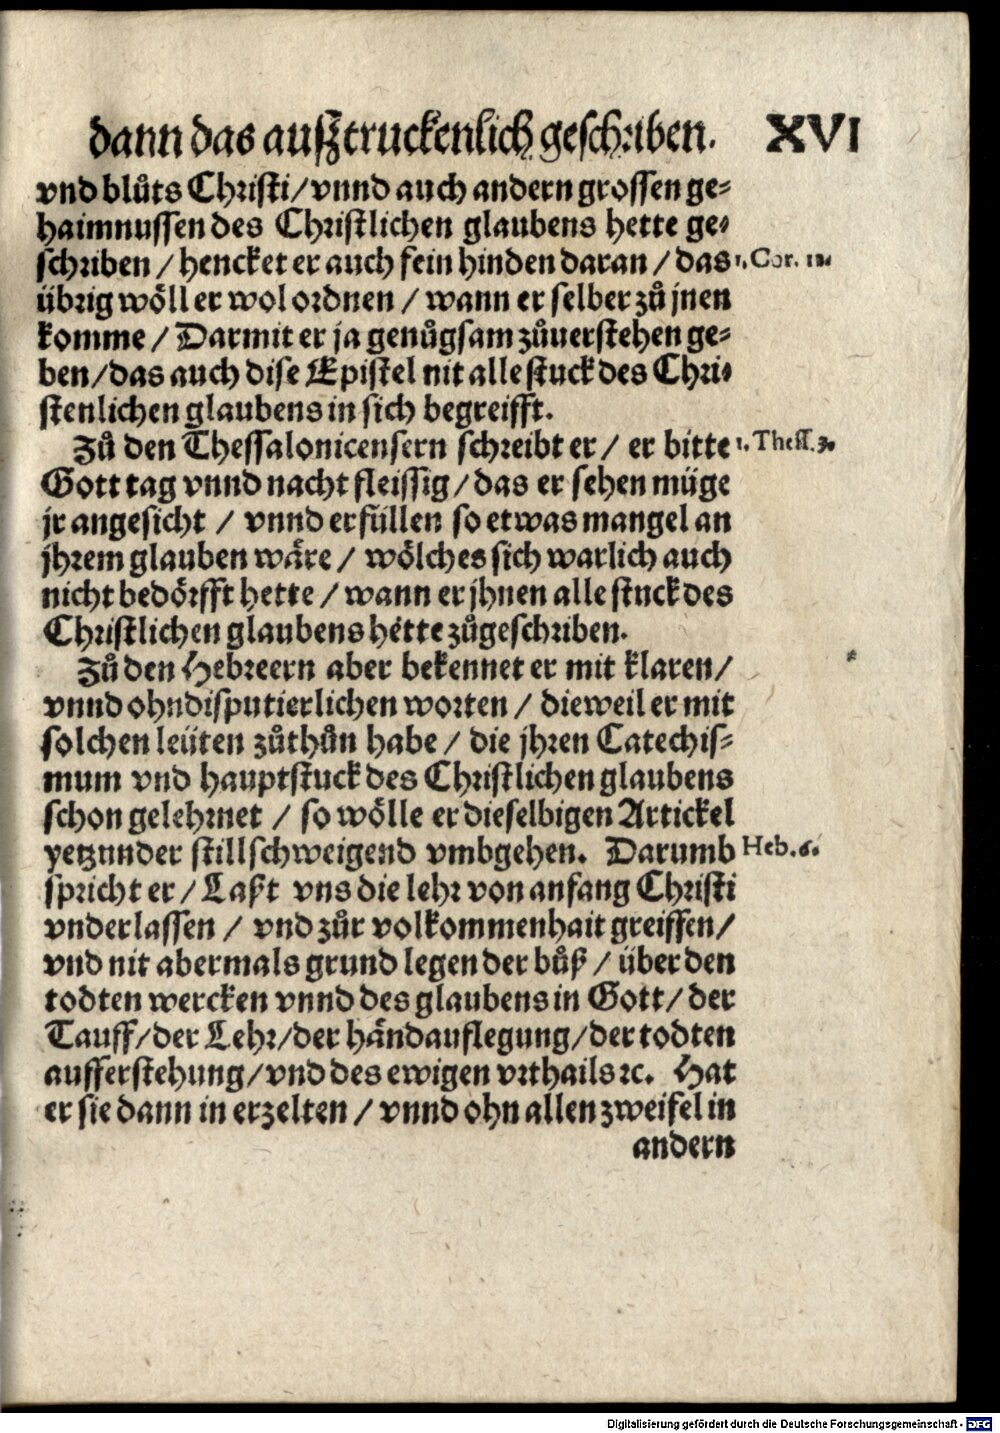 dann das außtruckenlich geschriben. XVI
vnd blůts Christi/vnnd auch andern grossen ge-
haimnussen des Christlichen glaubens hette ge-
schriben / hencket er auch fein hinden daran / das 1. Cor. 11.
übrig wöll er wol ordnen / wann er selber zů jnen
komme / Darmit er ja genůgsam zůuerstehen ge-
ben/das auch dise Epistel nit alle stuck des Chri-
stenlichen glaubens in sich begreifft.
Zů den Thessalonicensern schreibt er / er bitte 1. Thess. 3.
Gott tag vnnd nacht fleissig/das er sehen müge
jr angesicht / vnnd erfüllen so etwas mangel an
jhrem glauben wäre / wölches sich warlich auch
nicht bedörfft hette / wann er jhnen alle stuck des
Christlichen glaubens hette zůgeschriben.
Zů den Hebreern aber bekennet er mit klaren/
vnnd ohndisputierlichen worten / dieweil er mit
solchen leüten zůthůn habe / die jhren Catechis-
mum vnd hauptstuck des Christlichen glaubens
schon gelehrnet / so wölle er dieselbigen Artickel
yetzunder stillschweigend vmbgehen. Darumb Heb. 6.
spricht er / Laßt vns die lehr von anfang Christi
vnderlassen / vnd zůr volkommenhait greiffen/
vnd nit abermals grund legen der bůß / über den
todten wercken vnnd des glaubens in Gott/ der
Tauff/der Lehr/der händauflegung/der todten
aufferstehung/vnd des ewigen vrthails ꝛc. Hat
er sie dann in erzelten / vnnd ohn allen zweifel in
andern
Digitalisierung gefördert durch die Deutsche Forschungsgemeinschaft - DFG